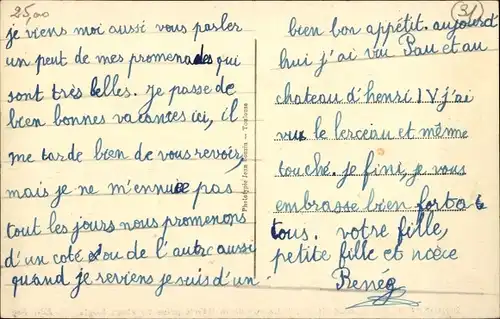 25,00
je viens moi aussi vous parler
un peut de mes promenades qui
sont très belles. je passe de
bien bonnes vacantes ici, il
me tarde bien de vous revoir,
mais je ne m'ennuie pas
tout les jours nous promenons
d'un coté ou de l'autre aussi
quand je reviens je suis d'un
Phototypie Toulouse
31
bien bon appétit. aujourd
hui j'ai vu Pau et au
chateau d'henri IV j'ai
vu le berceau et même
touché. je fini, je vous
embrasse bien fort a
tous. votre fille,
petite fille et nœce
Renée